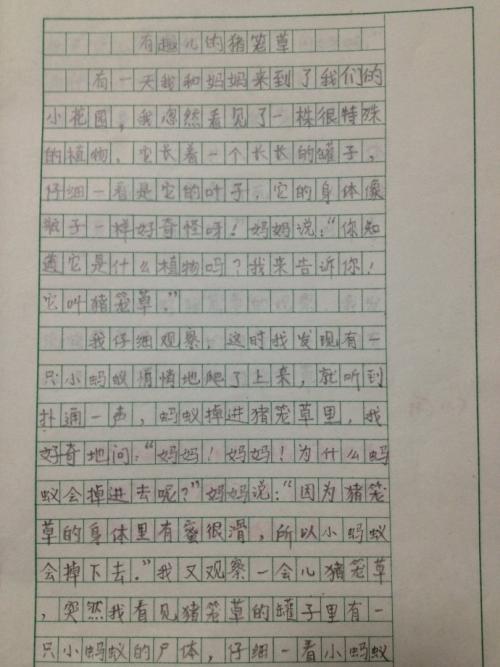 有趣儿的猪笼草
有一天我和妈妈来到了我们的
小花园，我忽然看见了一株很特殊
的植物。它长着一个长长的罐子，
仔细一看是它的叶子，它的身体像
瓶子一样好奇怪呀！妈妈说：“你知
道它是什么植物吗？我来告诉你！
它叫猪笼草。”
我仔细观察，这时我发现有一
只小蚂蚁悄悄地爬了上来，就听到
扑通一声，蚂蚁掉进猪笼草里，我
好奇地问：“妈妈！妈妈！为什么蚂
蚁会掉进去呢？”妈妈说：“因为猪笼
草的身体里有蜜很滑，所以小蚂蚁
会掉下去。”我又观察一会儿猪笼草
，突然我看见猪笼草的罐子里有一
只小蚂蚁的尸体，仔细一看小蚂蚁